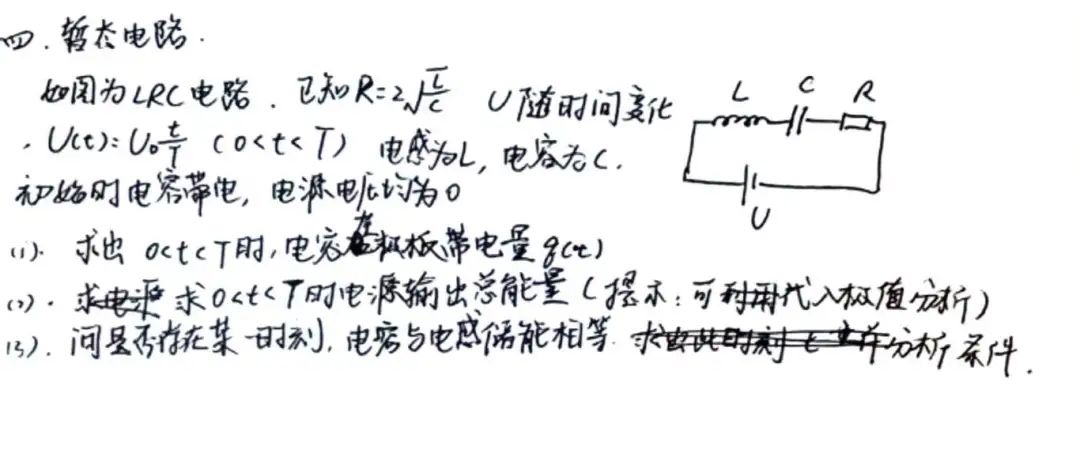 四．暂态电路．
如图为LRC电路．已知R=2√(L/C) U随时间变化
，U(t)=U₀ t/T (0<t<T) 电感为L，电容为C．
初始时电容带电，电源电压均为0
L C R
U
(1)．求出 0<t<T时，电容左极板带电量q(t)
(2)．求0<t<T时电源输出总能量（提示：可利用代入极值分析）
(3)．问是否存在某一时刻，电容与电感储能相等．分析条件．